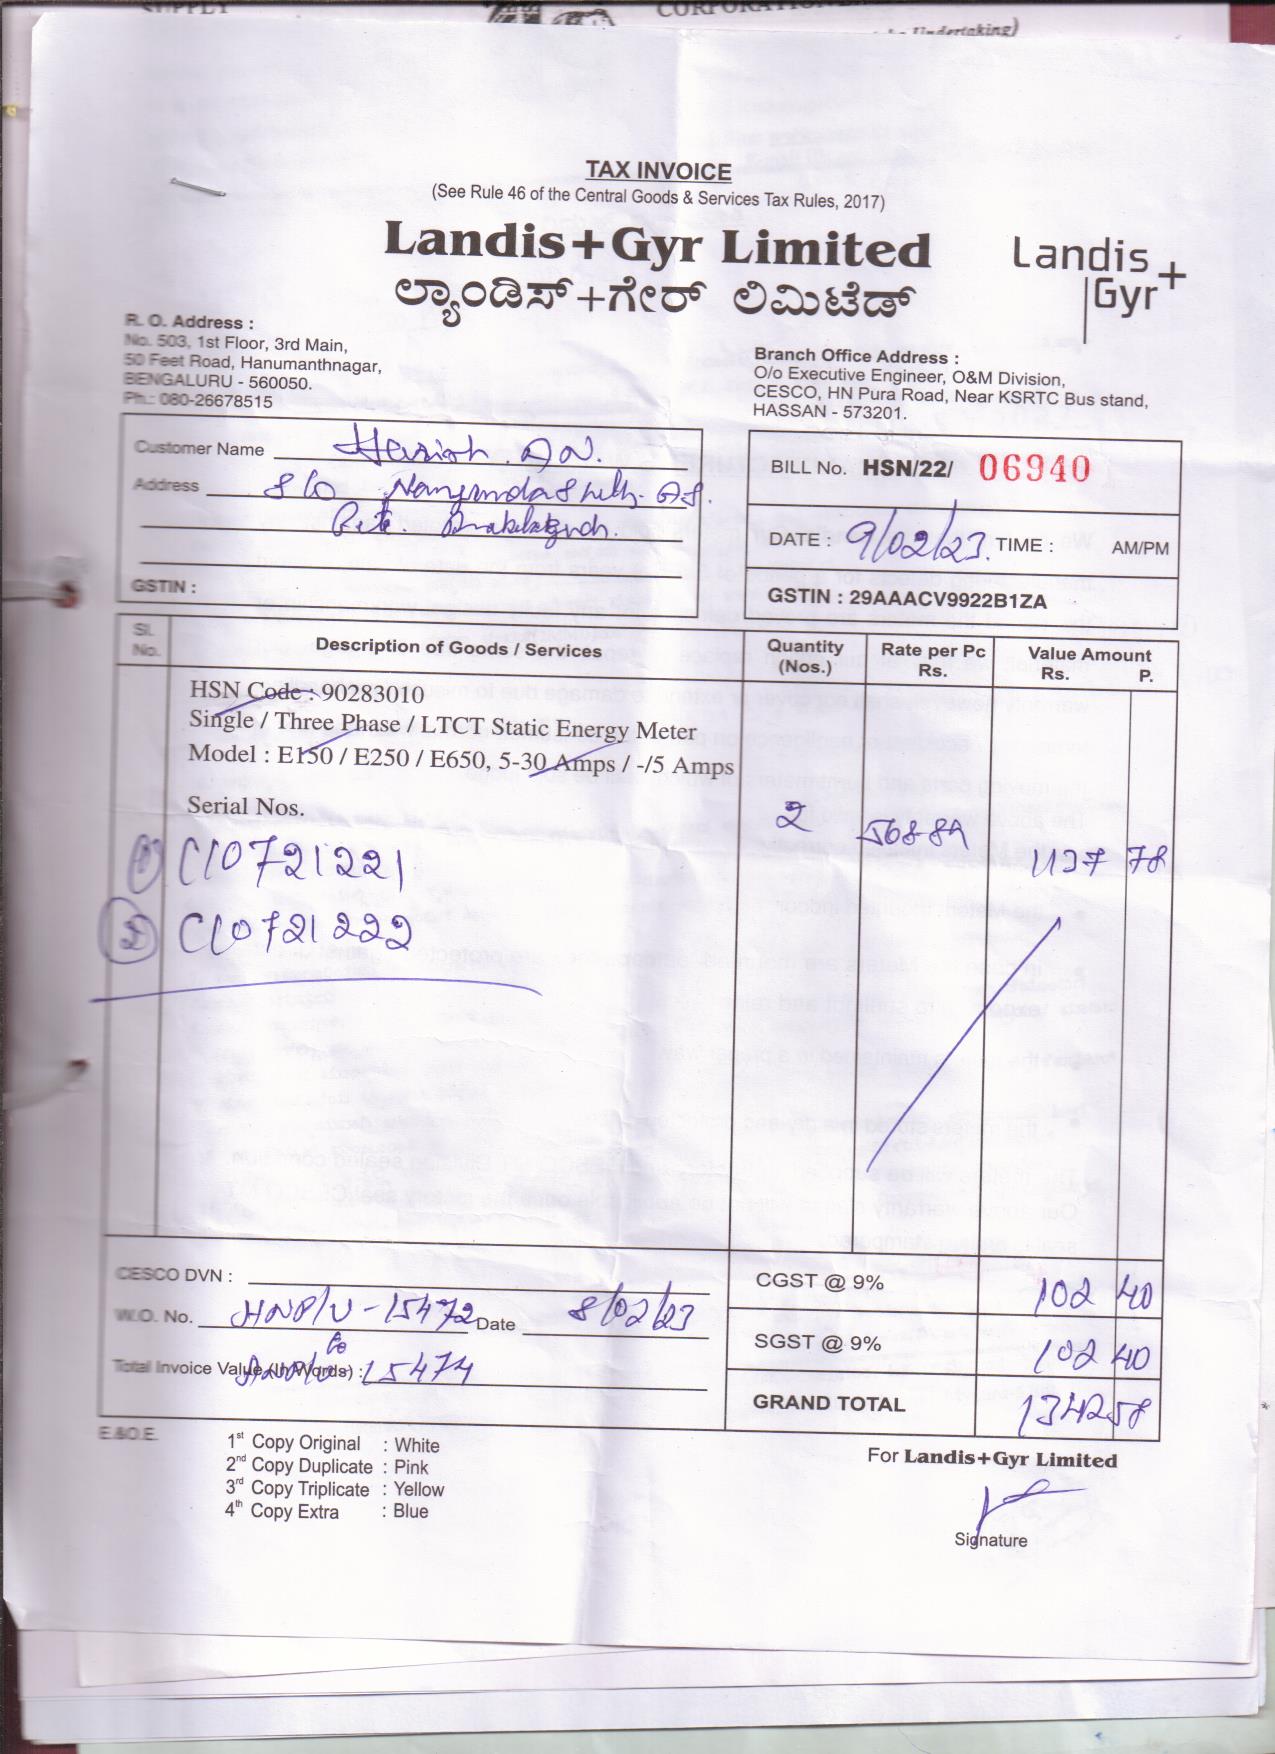 SUPPLY
CORPORATION
Undertaking)
TAX INVOICE
(See Rule 46 of the Central Goods & Services Tax Rules, 2017)
Landis+Gyr Limited
ಲ್ಯಾಂಡಿಸ್+ಗೇರ್ ಲಿಮಿಟೆಡ್
Landis
Gyr+
R. O. Address :
No. 503, 1st Floor, 3rd Main,
50 Feet Road, Hanumanthnagar,
BENGALURU - 560050.
Ph.: 080-26678515
Branch Office Address :
O/o Executive Engineer, O&M Division,
CESCO, HN Pura Road, Near KSRTC Bus stand,
HASSAN - 573201.
Customer Name
Address S/o
GSTIN :
BILL No. HSN/22/ 06940
DATE : 9/02/23. TIME : AM/PM
GSTIN : 29AAACV9922B1ZA
Sl. No. Description of Goods / Services Quantity (Nos.) Rate per Pc Rs. Value Amount Rs. P.
HSN Code : 90283010
Single / Three Phase / LTCT Static Energy Meter
Model : E150 / E250 / E650, 5-30 Amps / -/5 Amps
Serial Nos.
2 568.89 1137 78
1) C10721221
2) C10721222
CESCO DVN :
CGST @ 9% 102 40
W.O. No. HNP/U-15472 Date 8/02/23
SGST @ 9% 102 40
to
Total Invoice Value (In Words) : 15474
GRAND TOTAL 1342 58
E.&O.E.
1st Copy Original : White
2nd Copy Duplicate : Pink
3rd Copy Triplicate : Yellow
4th Copy Extra : Blue
For Landis+Gyr Limited
Signature